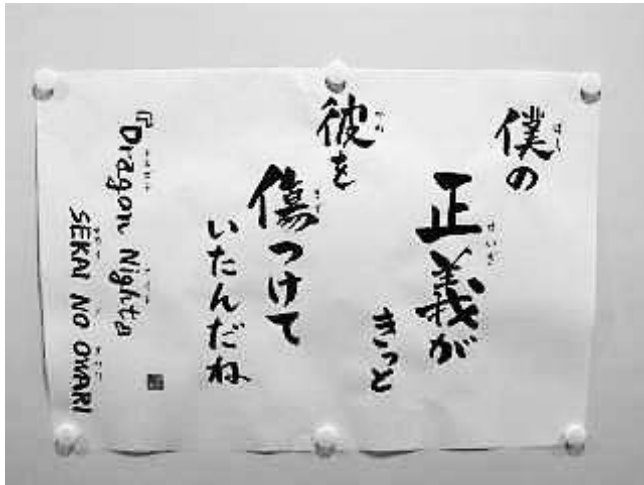 僕の
正義が
きっと
彼を
傷つけて
いたんだね
『Dragon Night』
SEKAI NO OWARI